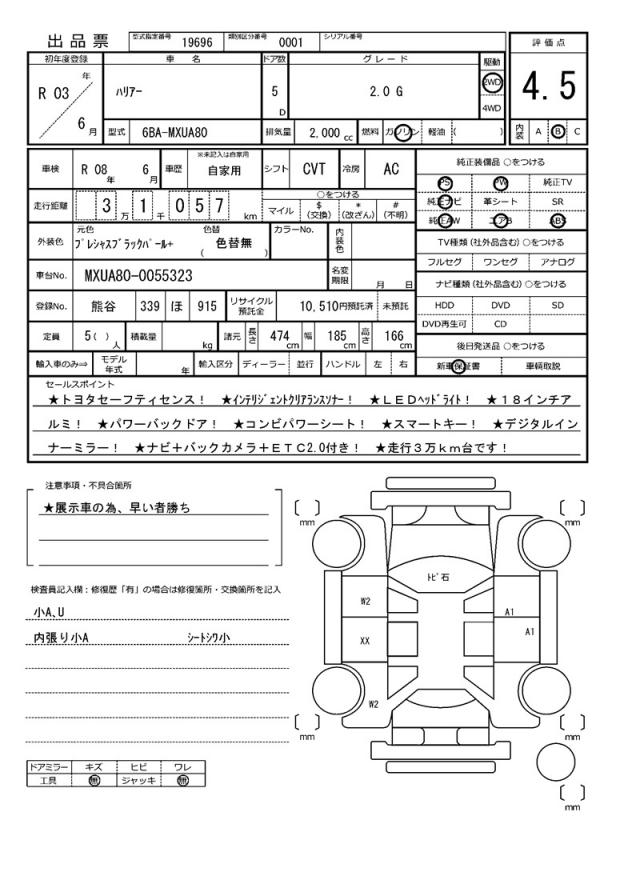 出品票 型式指定番号 19696 類別区分番号 0001 シリアル番号
初年度登録 車名 ドア数 グレード 駆動 評価点
R 03 年 6 月 ハリアー 5 D 2.0 G 2WD 4WD 4.5
型式 6BA-MXUA80 排気量 2,000 cc 燃料 ガソリン 軽油 ( ) 内装 A B C
車検 R 08 年 6 月 車歴 ※未記入は自家用 自家用 シフト CVT 冷房 AC 純正装備品 ○をつける
PS PW 純正TV
走行距離 3 万 1 千 0 5 7 km ○をつける 純正ナビ 革シート SR
マイル $ (交換) * (改ざん) # (不明) 純正AW エアB ABS
外装色 元色 プレシャスブラックパール+ 色替 ( 色替無 ) カラーNo. 内装色 TV種類 (社外品含む) ○をつける
フルセグ ワンセグ アナログ
車台No. MXUA80-0055323 名変期限 月 日 ナビ種類 (社外品含む) ○をつける
登録No. 熊谷 339 ほ 915 リサイクル預託金 10,510円預託済 未預託 HDD DVD SD
DVD再生可 CD
定員 5( ) 人 積載量 kg 諸元 長さ 474 cm 幅 185 cm 高さ 166 cm 後日発送品 ○をつける
輸入車のみ⇒ モデル年式 年 輸入区分 ディーラー 並行 ハンドル 左 右 新車保証書 車輌取説
セールスポイント
★トヨタセーフティセンス! ★インテリジェントクリアランスソナー! ★LEDヘッドライト! ★18インチア
ルミ! ★パワーバックドア! ★コンビパワーシート! ★スマートキー! ★デジタルイン
ナーミラー! ★ナビ+バックカメラ+ETC2.0付き! ★走行3万km台です!
注意事項・不具合箇所
★展示車の為、早い者勝ち
検査員記入欄:修復歴「有」の場合は修復箇所・交換箇所を記入
小A、U
内張り小A シートシワ小
ドアミラー キズ ヒビ ワレ
工具 無 ジャッキ 無
mm mm
トビ石
W2 A1
XX A1
W2
mm mm
mm